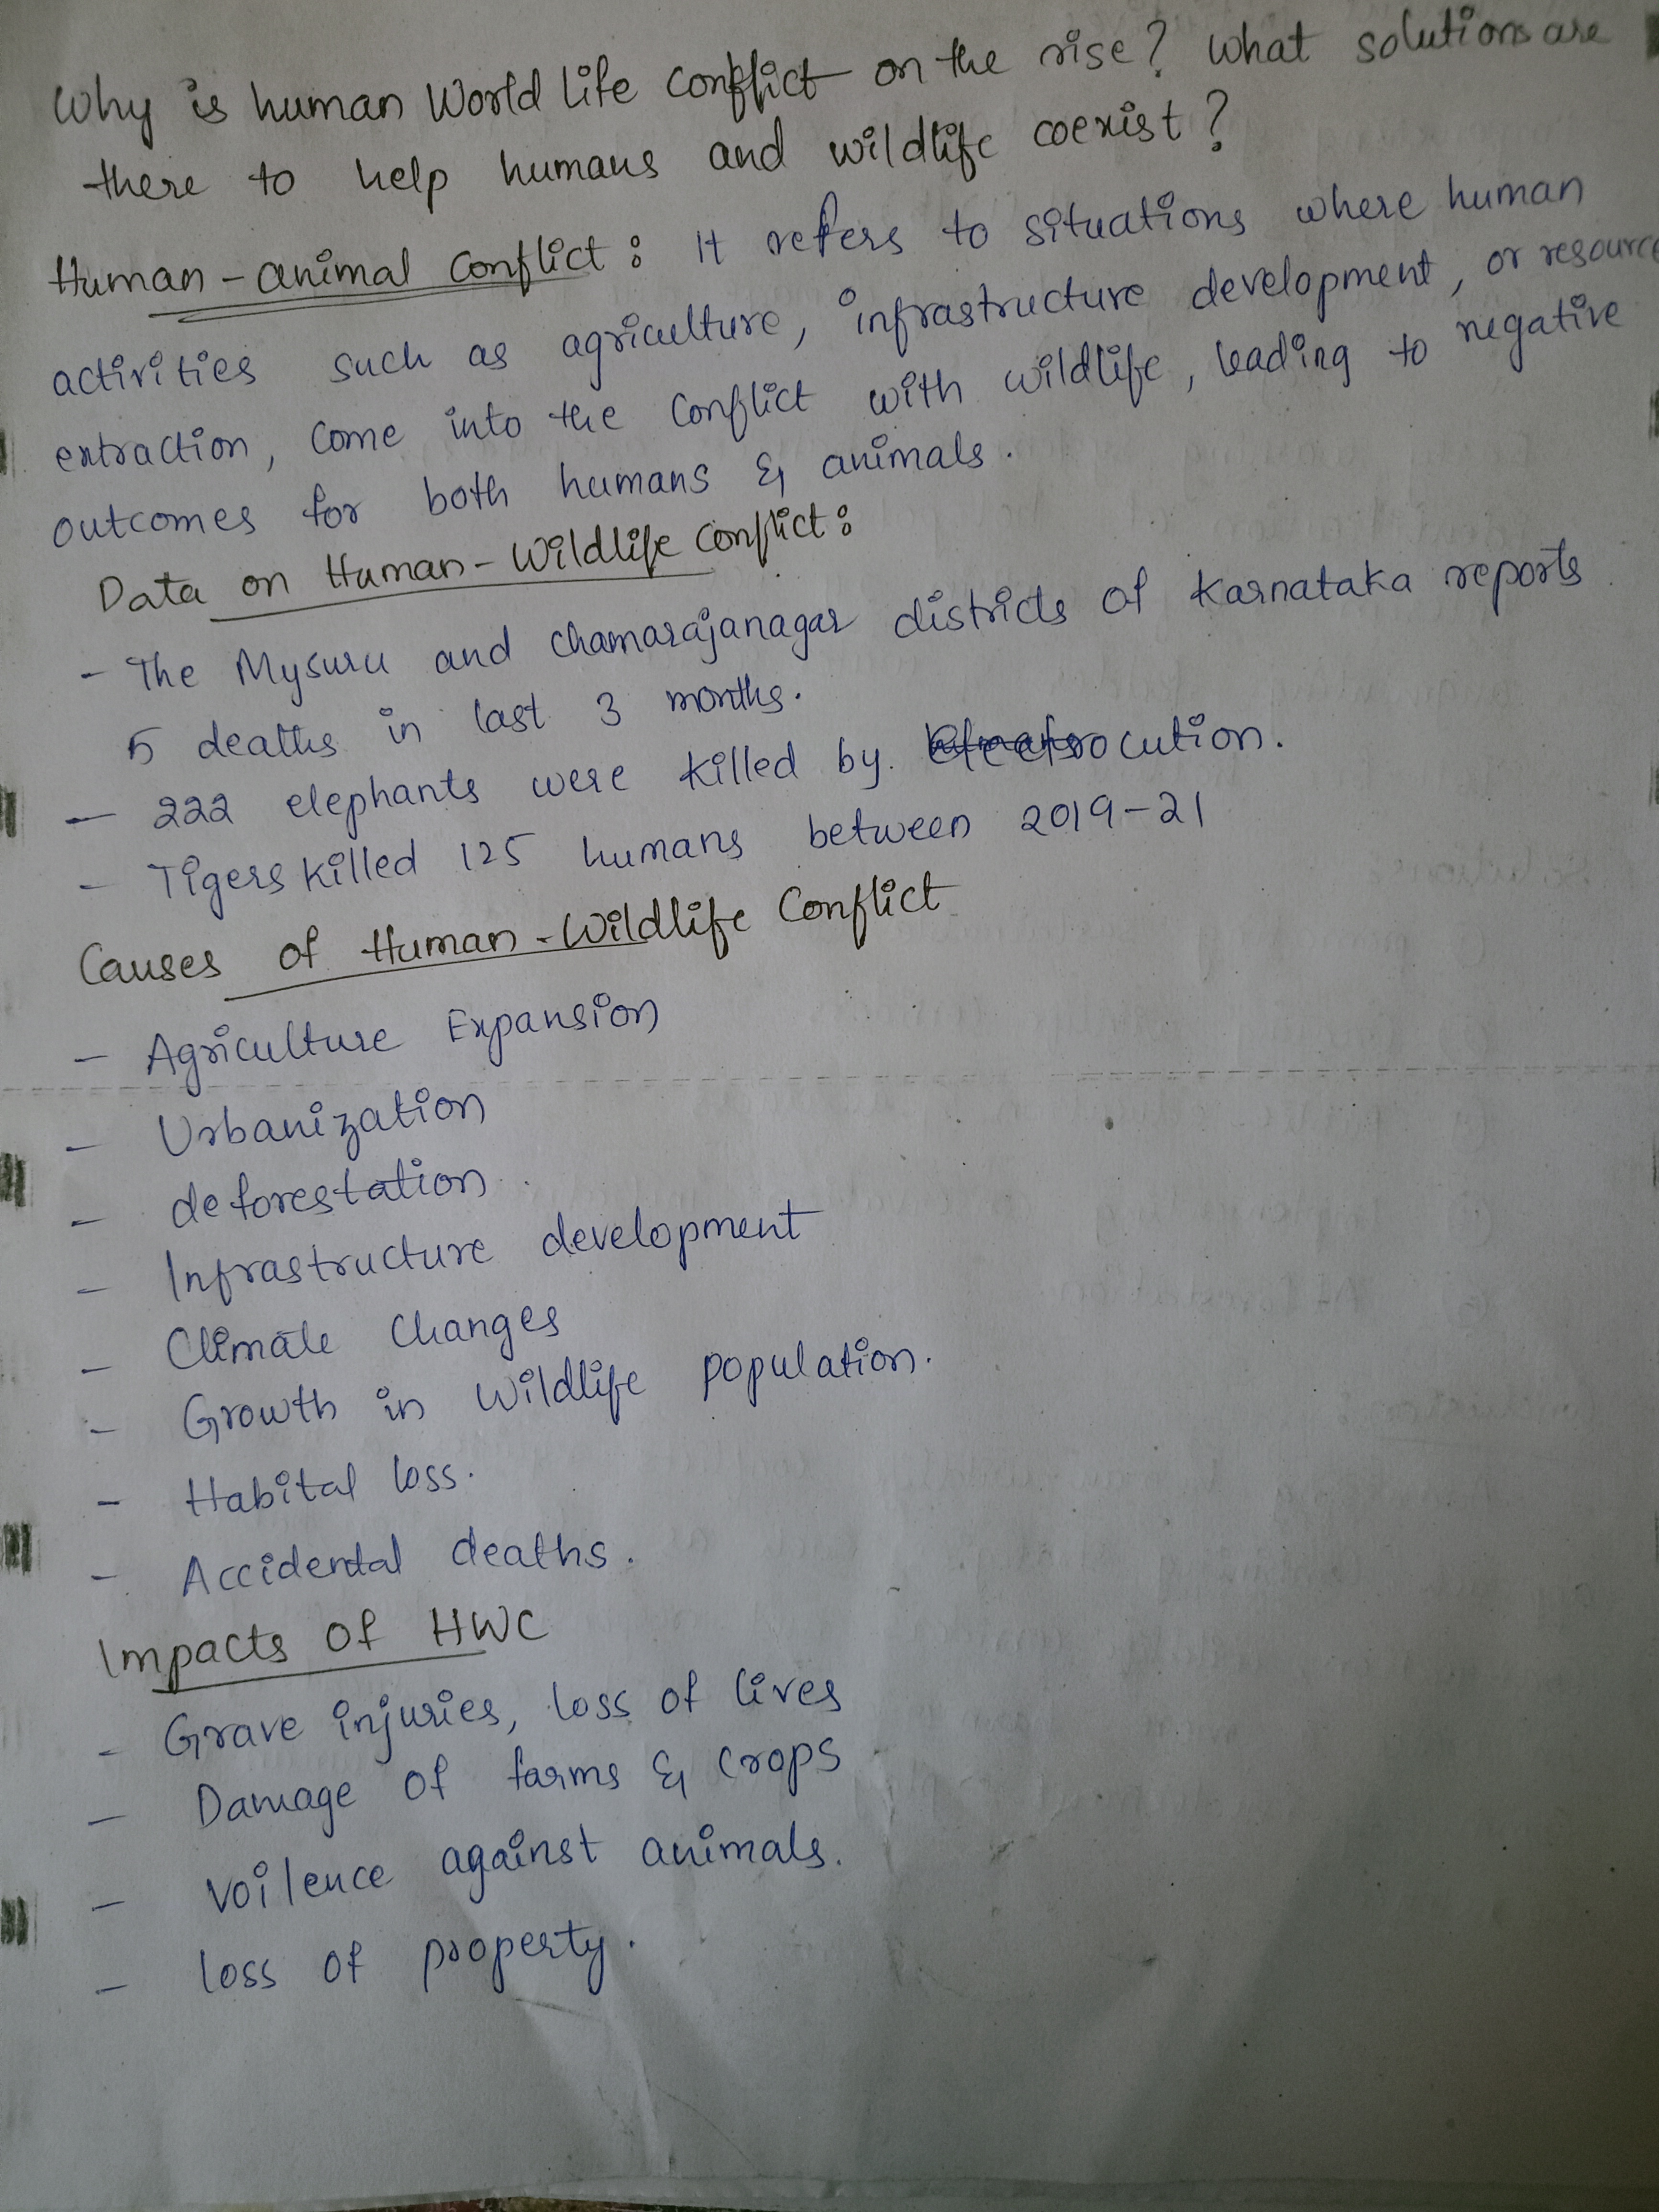 Why is human World life conflict on the rise? What solutions are
there to help humans and wildlife coexist?
Human-animal conflict: It refers to situations where human
activities such as agriculture, infrastructure development, or resource
extraction, come into the conflict with wildlife, leading to negative
outcomes for both humans & animals.
Data on Human-Wildlife conflict:
- The Mysuru and chamarajanagar districts of Karnataka reports
5 deaths in last 3 months.
- 222 elephants were killed by electrocution.
- Tigers killed 125 humans between 2019-21
Causes of Human-Wildlife Conflict
- Agriculture Expansion
- Urbanization
- deforestation.
- Infrastructure development
- Climate Changes
- Growth in wildlife population.
- Habital loss.
- Accidental deaths.
Impacts of HWC
- Grave injuries, loss of lives
- Damage of farms & crops
- voilence against animals.
- loss of property.